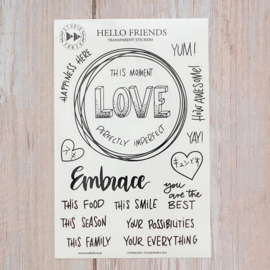 HELLO FRIENDS
TRANSPARENT STICKERS
YUM!
HAPPINESS HERE
THIS MOMENT
LOVE
PERFECTLY IMPERFECT
How AWESOME!
YAY!
キュンです
Embrace
you are the BEST
THIS FOOD
THIS SMILE
THIS SEASON
YOUR POSSIBILITIES
THIS FAMILY
YOUR EVERYTHING